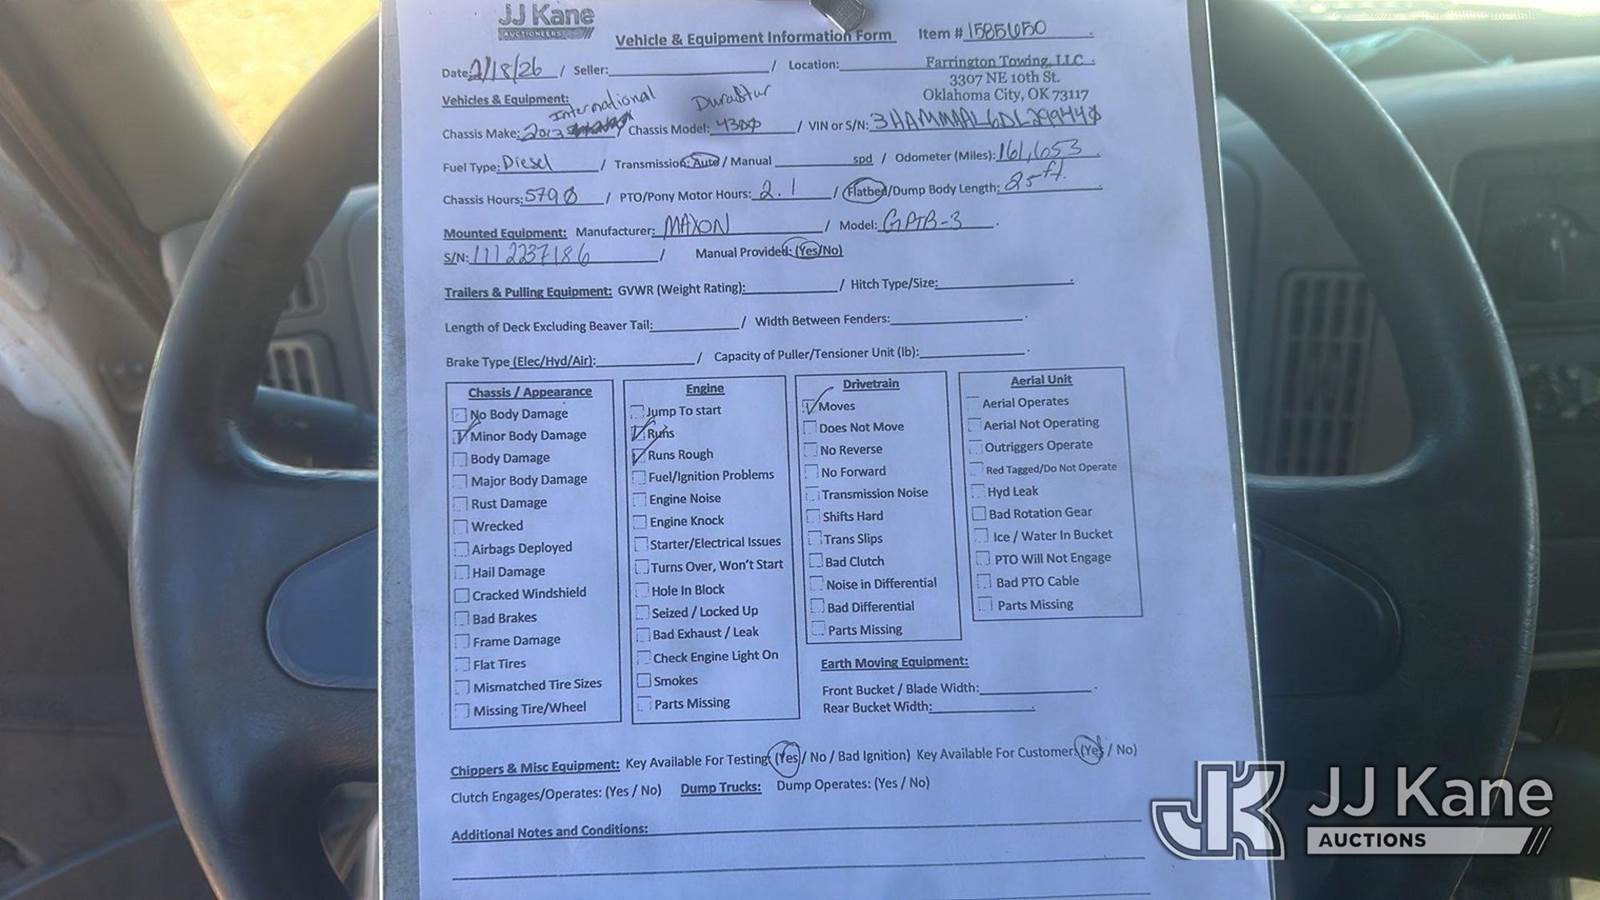 JJ Kane
AUCTIONEERS
Vehicle & Equipment Information Form Item # 15851650
Date: 2/18/26 / Seller: / Location: Farrington Towing, LLC
3307 NE 10th St.
Oklahoma City, OK 73117
Vehicles & Equipment:
International DuraStar
Chassis Make: 2013 / Chassis Model: 4300 / VIN or S/N: 3HAMMAAL6DL299440
Fuel Type: Diesel / Transmission: Auto / Manual spd / Odometer (Miles): 161,653
Chassis Hours: 5790 / PTO/Pony Motor Hours: 2.1 / Flatbed/Dump Body Length: 25ft.
Mounted Equipment: Manufacturer: MAXON / Model: GPTB-3
S/N: 1112237186 / Manual Provided: (Yes/No)
Trailers & Pulling Equipment: GVWR (Weight Rating): / Hitch Type/Size:
Length of Deck Excluding Beaver Tail: / Width Between Fenders:
Brake Type (Elec/Hyd/Air): / Capacity of Puller/Tensioner Unit (lb):
Chassis / Appearance
No Body Damage
Minor Body Damage
Body Damage
Major Body Damage
Rust Damage
Wrecked
Airbags Deployed
Hail Damage
Cracked Windshield
Bad Brakes
Frame Damage
Flat Tires
Mismatched Tire Sizes
Missing Tire/Wheel
Engine
Jump To start
Runs
Runs Rough
Fuel/Ignition Problems
Engine Noise
Engine Knock
Starter/Electrical Issues
Turns Over, Won't Start
Hole In Block
Seized / Locked Up
Bad Exhaust / Leak
Check Engine Light On
Smokes
Parts Missing
Drivetrain
Moves
Does Not Move
No Reverse
No Forward
Transmission Noise
Shifts Hard
Trans Slips
Bad Clutch
Noise in Differential
Bad Differential
Parts Missing
Aerial Unit
Aerial Operates
Aerial Not Operating
Outriggers Operate
Red Tagged/Do Not Operate
Hyd Leak
Bad Rotation Gear
Ice / Water In Bucket
PTO Will Not Engage
Bad PTO Cable
Parts Missing
Earth Moving Equipment:
Front Bucket / Blade Width:
Rear Bucket Width:
Chippers & Misc Equipment: Key Available For Testing: (Yes / No / Bad Ignition) Key Available For Customer: (Yes / No)
Clutch Engages/Operates: (Yes / No) Dump Trucks: Dump Operates: (Yes / No)
Additional Notes and Conditions:
JK JJ Kane
AUCTIONS